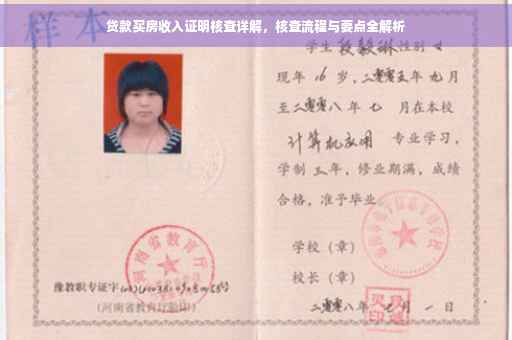 贷款买房收入证明核查详解，核查流程与要点全解析
样本
学生段毅琳性别女
现年16岁，二零零五年九月
至二零零八年七月在本校
计算机应用 专业学习，
学制三年，修业期满，成绩
合格，准予毕业。
学校（章）
校长（章）
二零零八年七月一日
河南省教育厅
豫教职专证字
（河南省教育厅验印）